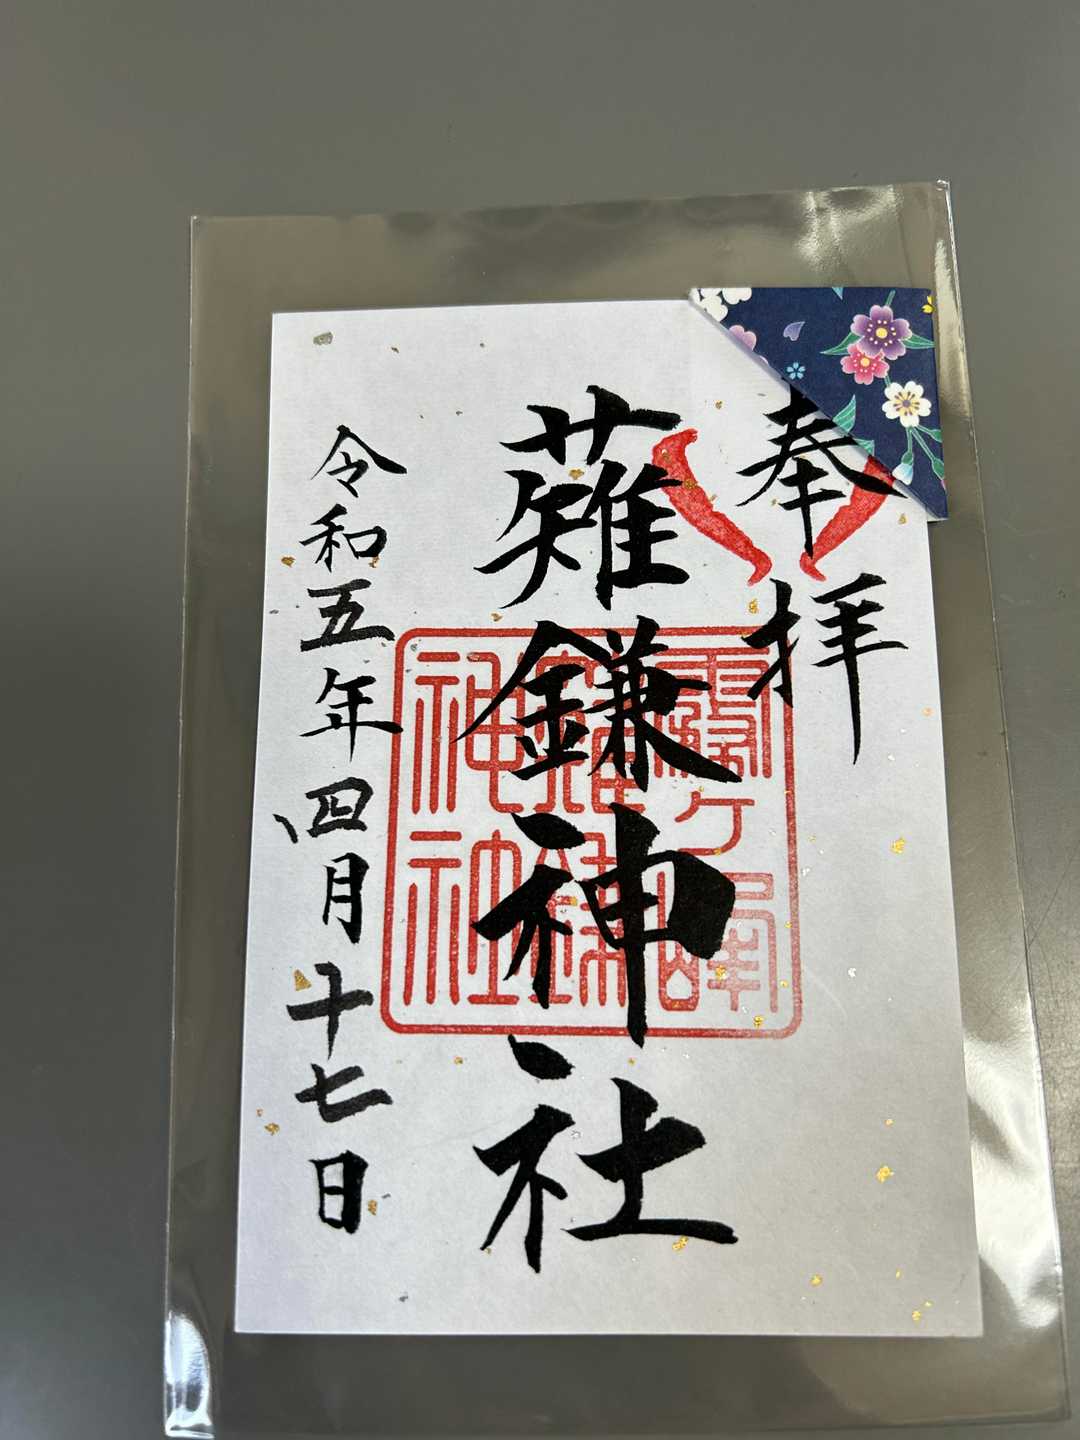 奉拝
薙鎌神社
令和五年四月十七日
霧ヶ峰
薙鎌
神社